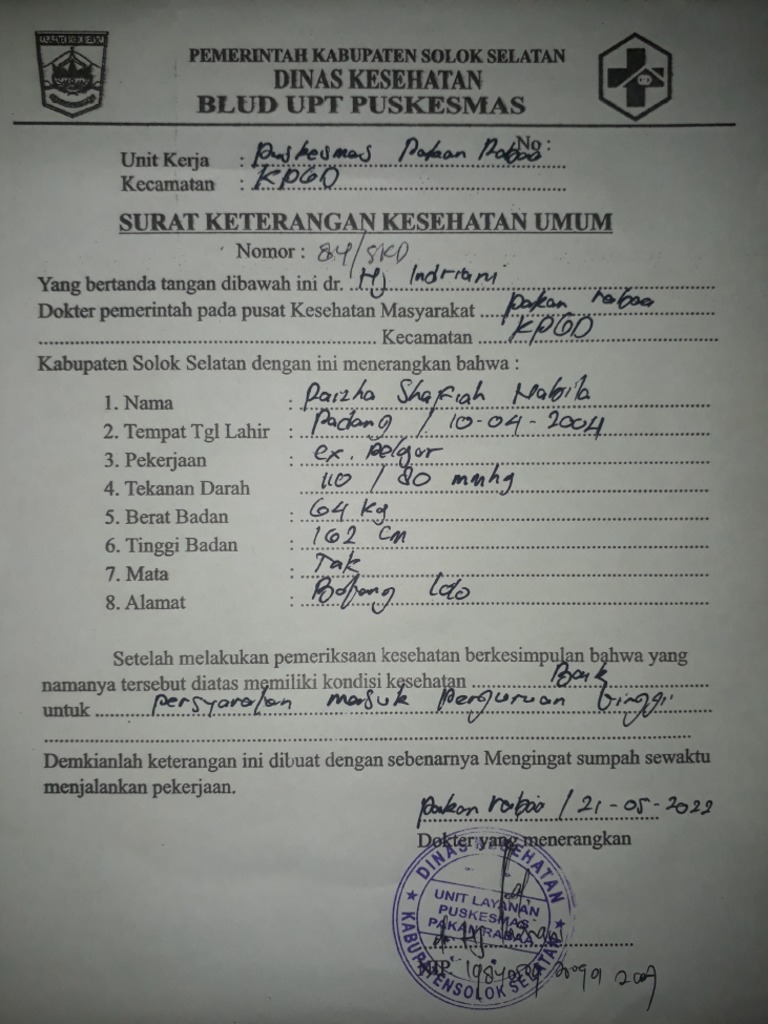 KABUPATEN SOLOK SELATAN
PEMERINTAH KABUPATEN SOLOK SELATAN
DINAS KESEHATAN
BLUD UPT PUSKESMAS
No :
Unit Kerja : Puskesmas Pakan Rabaa
Kecamatan : KPGD
SURAT KETERANGAN KESEHATAN UMUM
Nomor : 84/SKD
Yang bertanda tangan dibawah ini dr. Hj Indriani
Dokter pemerintah pada pusat Kesehatan Masyarakat pakan rabaa
Kecamatan KPGD
Kabupaten Solok Selatan dengan ini menerangkan bahwa :
1. Nama : Shafiah Nabila
2. Tempat Tgl Lahir : Padang / 10-04-2004
3. Pekerjaan : ex. pelajar
4. Tekanan Darah 110 / 80 mmhg
5. Berat Badan : 64 kg
6. Tinggi Badan : 162 cm
7. Mata : Tak
8. Alamat :
Setelah melakukan pemeriksaan kesehatan berkesimpulan bahwa yang
namanya tersebut diatas memiliki kondisi kesehatan Baik
untuk persyaratan masuk perguruan tinggi
Demkianlah keterangan ini dibuat dengan sebenarnya Mengingat sumpah sewaktu
menjalankan pekerjaan.
pakan rabaa / 21-05-2022
Dokter yang menerangkan
DINAS KESEHATAN
UNIT LAYANAN
PUSKESMAS
PAKAN RABAA
KABUPATEN SOLOK SELATAN
NIP.